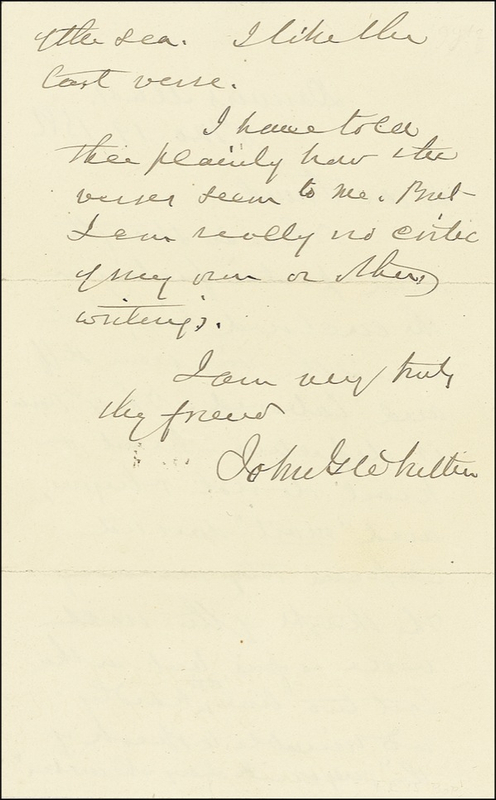 of the sea. I like the
last verse.
I have told
thee plainly how the
verses seem to me. But
I am really no critic
of my own or others
writings.
I am very truly
thy friend
John G Whittier